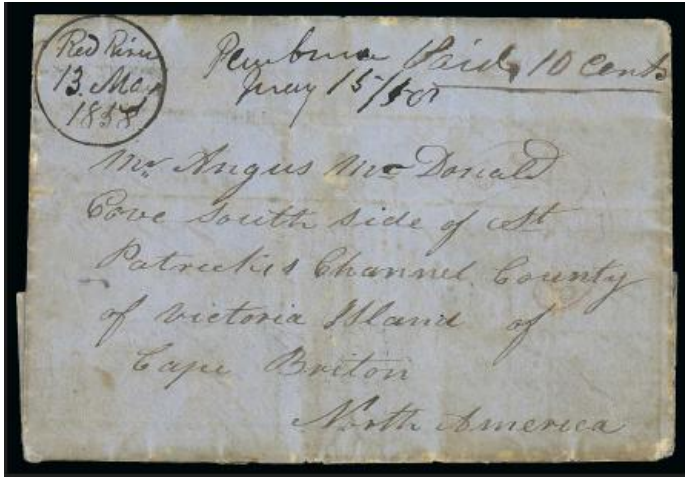 Red River
13 May
1858
Pembina Paid, 10 Cents
May 15/58
Mr Angus McDonald
Cove South side of St
Patrickis Channel County
of Victoria Island of
Cape Briton
North America